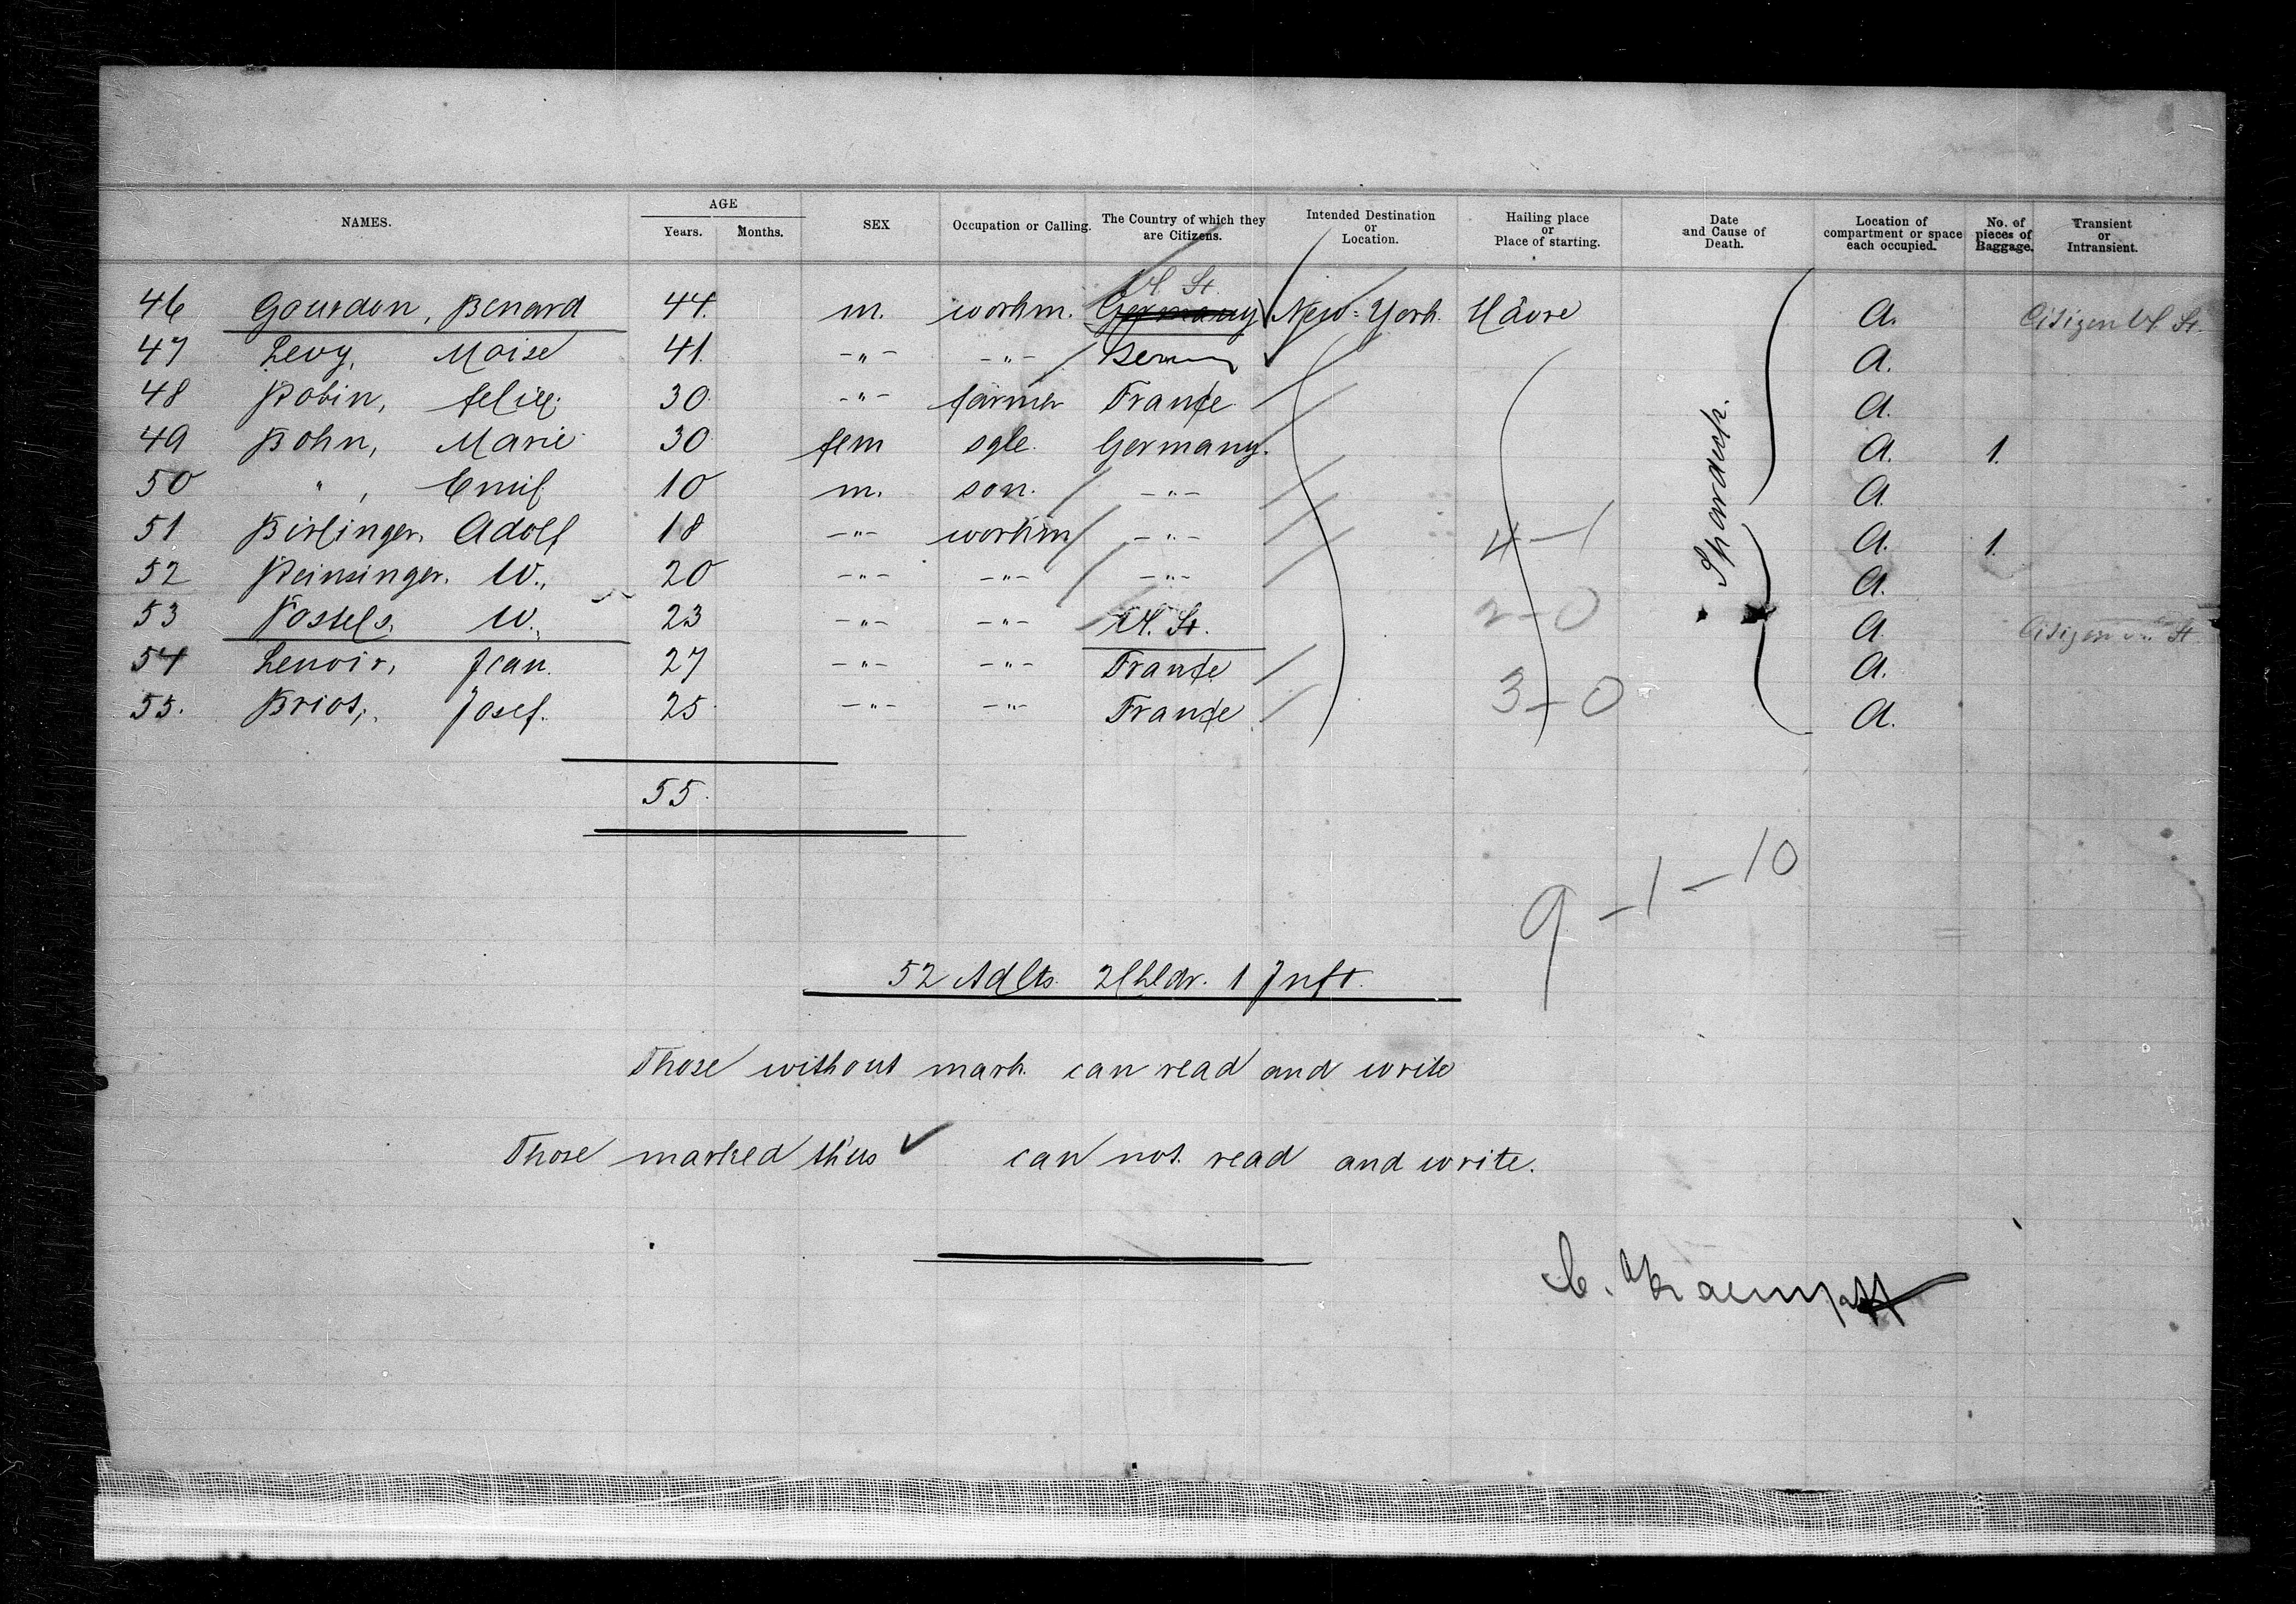 NAMES. AGE Years. Months. SEX Occupation or Calling. The Country of which they are Citizens. Intended Destination or Location. Hailing place or Place of starting. Date and Cause of Death. Location of compartment or space each occupied. No. of pieces of Baggage. Transient or Intransient.
U. St.
46 Gourdon, Benard 44. m. workm. Germany New-York. Hâvre A. Citizen U. St.
47 Levy, Moise 41. -"- -"- A.
48 Robin, felix. 30. -"- farmer France A.
49 Bohn, Marie 30 fem sgle. Germany. A. 1.
50 " , Emil 10 m. son. -"- A.
51 Birlinger, Adolf 18 -"- workm -"- 4-1 A. 1.
52 Reinsinger. W., 20 -"- -"- -"- A.
53 W., 23 -"- -"- U. St. 2-0 A. Citizen St.
54 Lenoir, Jean. 27 -"- -"- France A.
55. Josef. 25 -"- -"- France 3-0 A.
55.
9-1-10
52 Adlts. 2 Chldr. 1 Inft.
Those without mark. can read and write
Those marked thus ✓ can not. read and write.